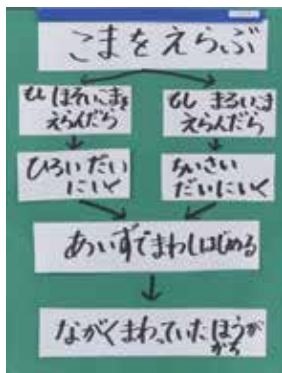 こまをえらぶ
もし ほそいこまを
えらんだら
もし まるいこま
えらんだら
ひろいだい
にいく
ちいさい
だいにいく
あいずでまわしはじめる
ながくまわっていたほうが
かち